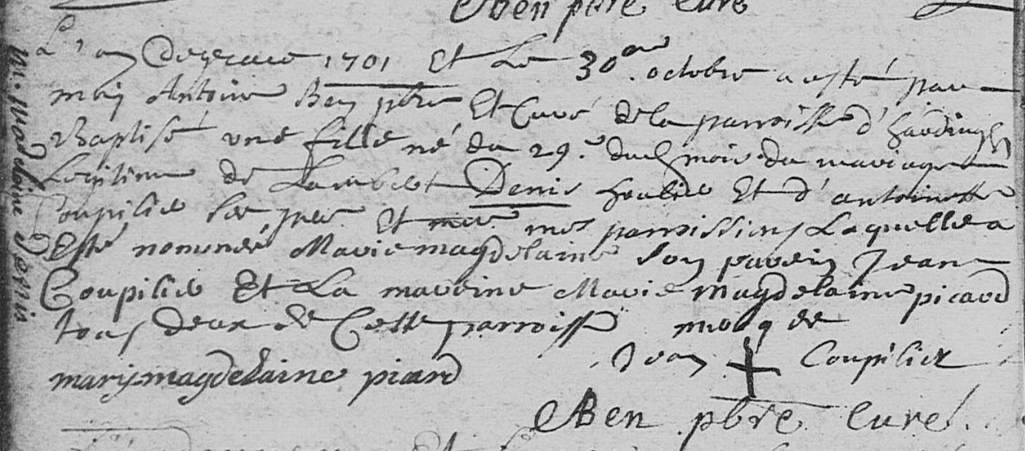 ABen pbre Cure
L'an De grace 1701 Et Le 30me octobre a esté par
moy Antoine Ben pbre Et Curé de la parroisse d'hardinghen
Baptisé une fille né du 29e dudt mois du mariage
Legitime de Lambert Denis houlier Et d'antoinette
Coupilier ses pere Et mere mes parroissiens Laquelle a
Esté nommée Marie magdelaine Son parein Jean
Coupilier Et La mareine Marie magdelaine picard
tous deux de Cette parroisse marque de
Jean + Coupilier
mary magdelaine picard
ABen pbre Curé.
M. magdelaine Denis